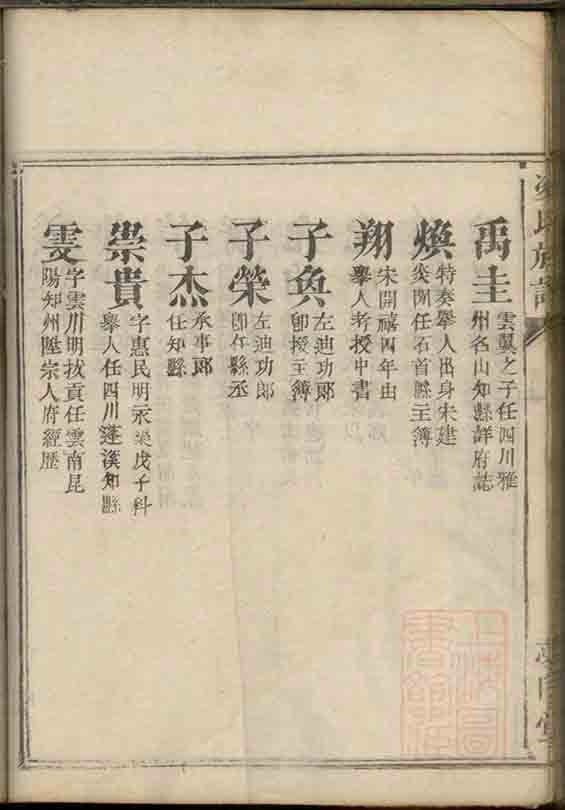 禹圭
雲翼之子任四川雅
州名山知縣詳府誌
煥
特奏舉人出身宋建
炎間任石首縣主簿
翔
宋開禧四年由
舉人考授中書
子奐
左迪功郎
卽授主簿
子榮
左迪功郎
卽任縣丞
子杰
承事郎
任知縣
崇貴
字惠民明永樂戊子科
舉人任四川蓬溪知縣
雯
字雲川明拔貢任雲南昆
陽知州陞宗人府經歷
氏族譜
上海圖
書館